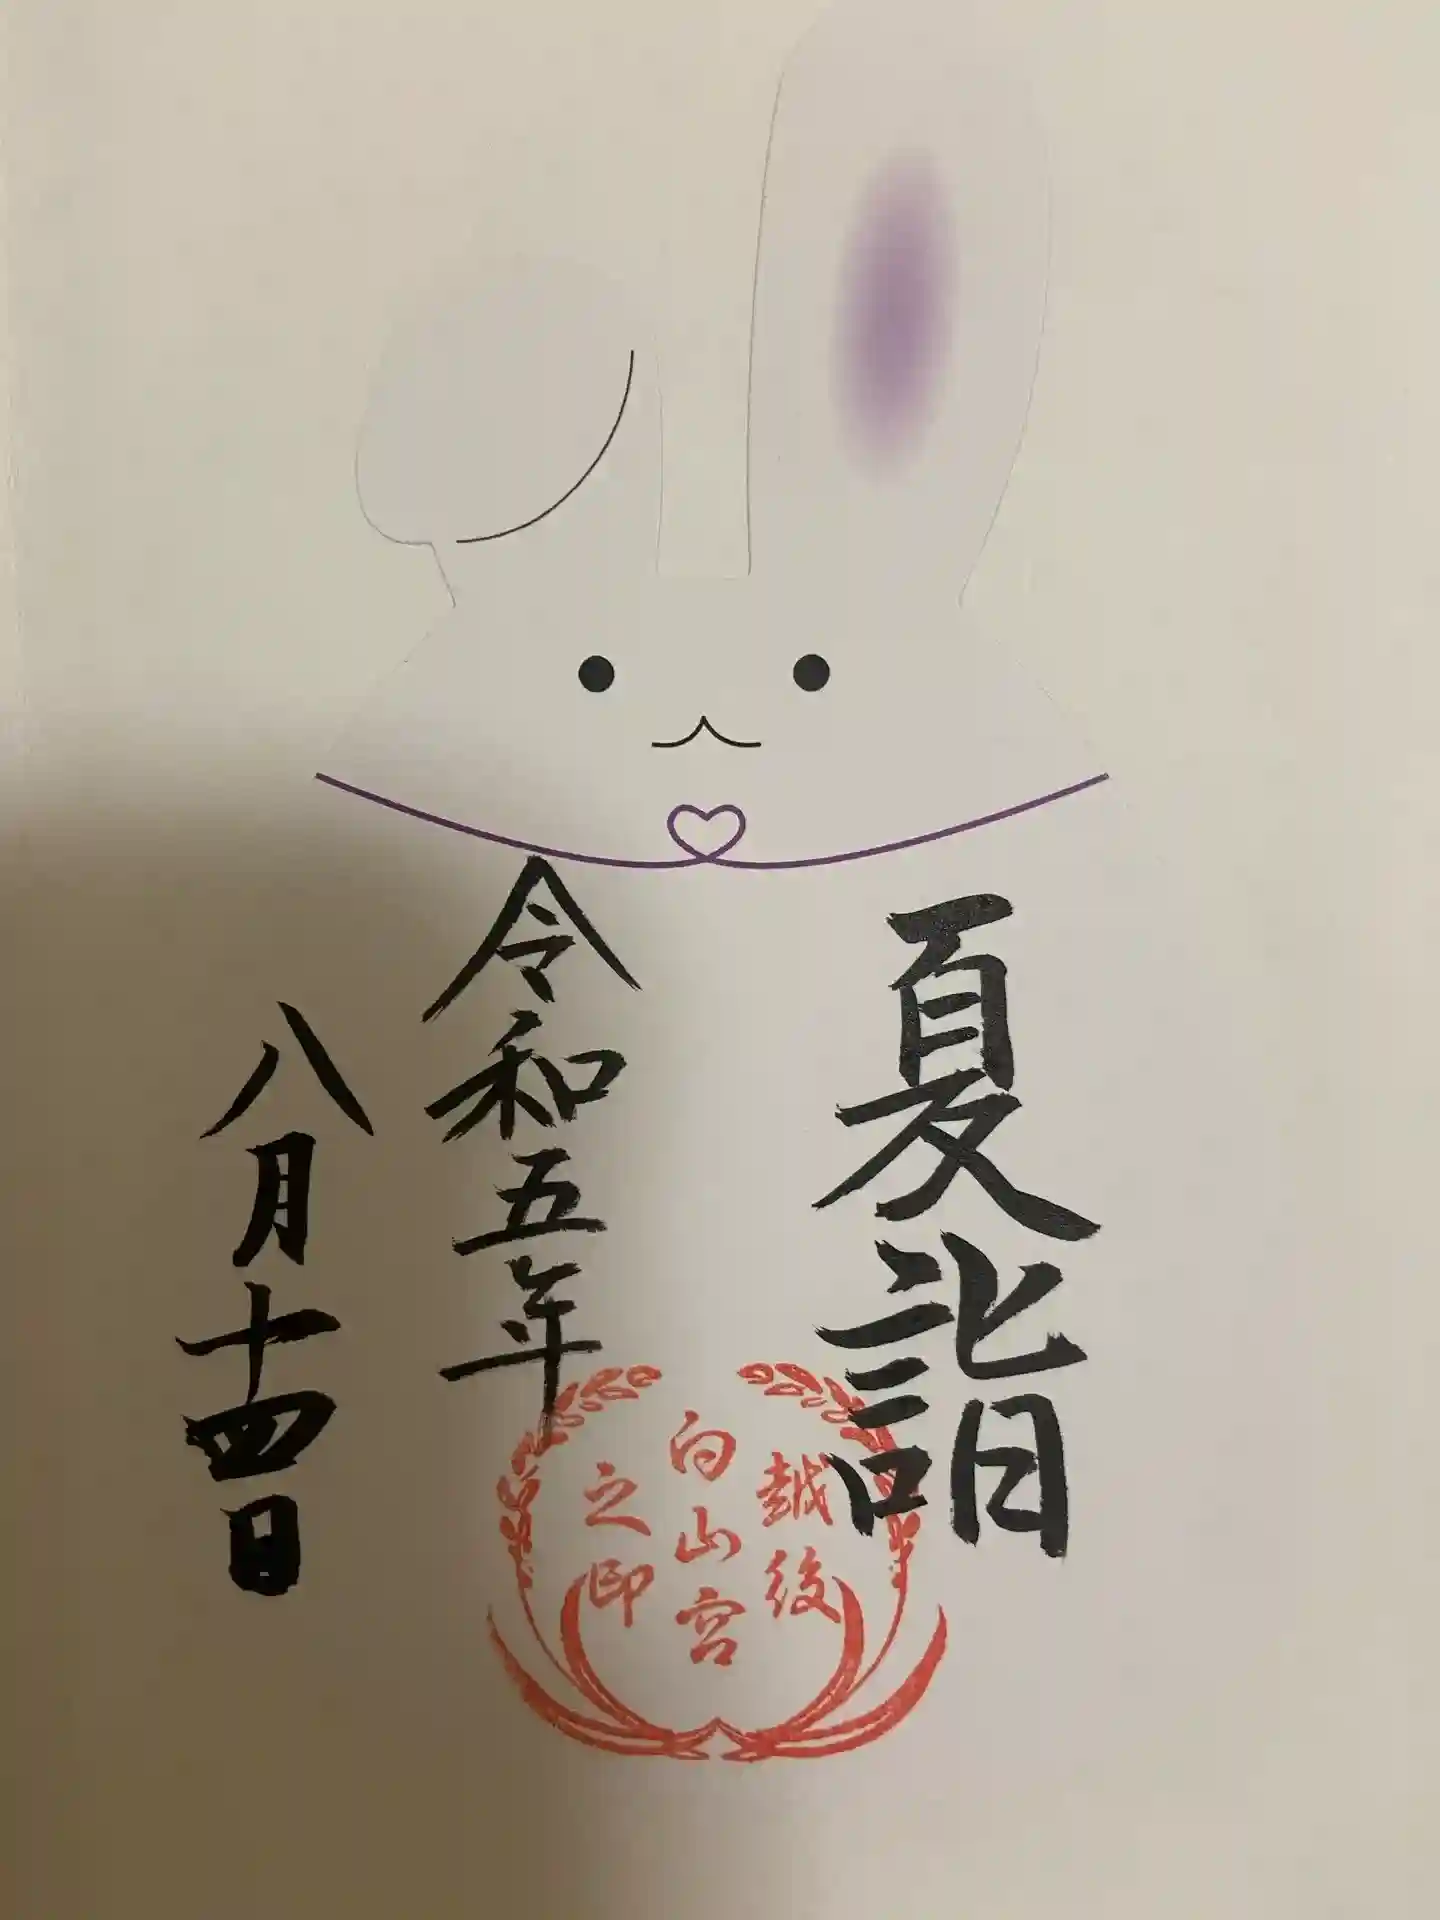 夏詣
令和五年
八月十四日
越後
白山宮
之印